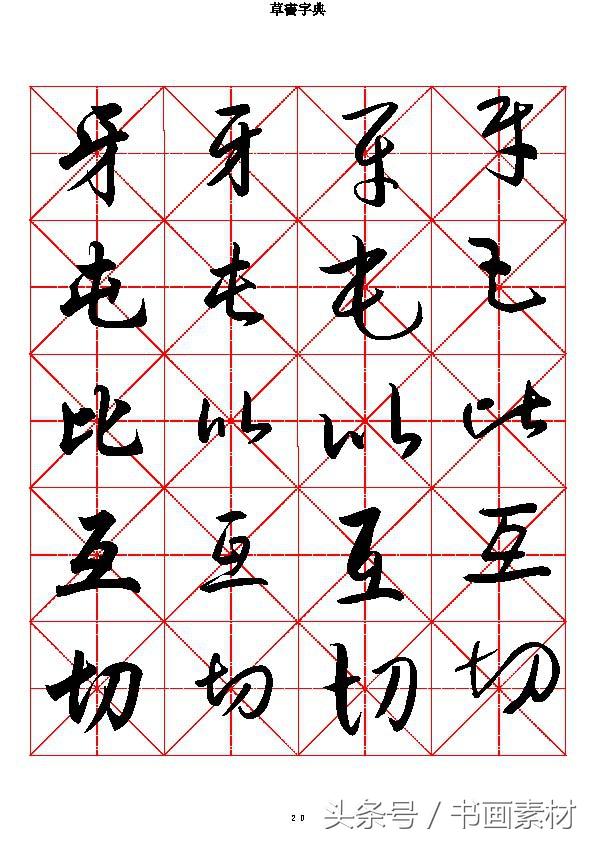 草書字典
牙 牙 牙 牙
屯 屯 屯 屯
比 比 比 比
互 互 互 互
切 切 切 切
20
头条号 / 书画素材